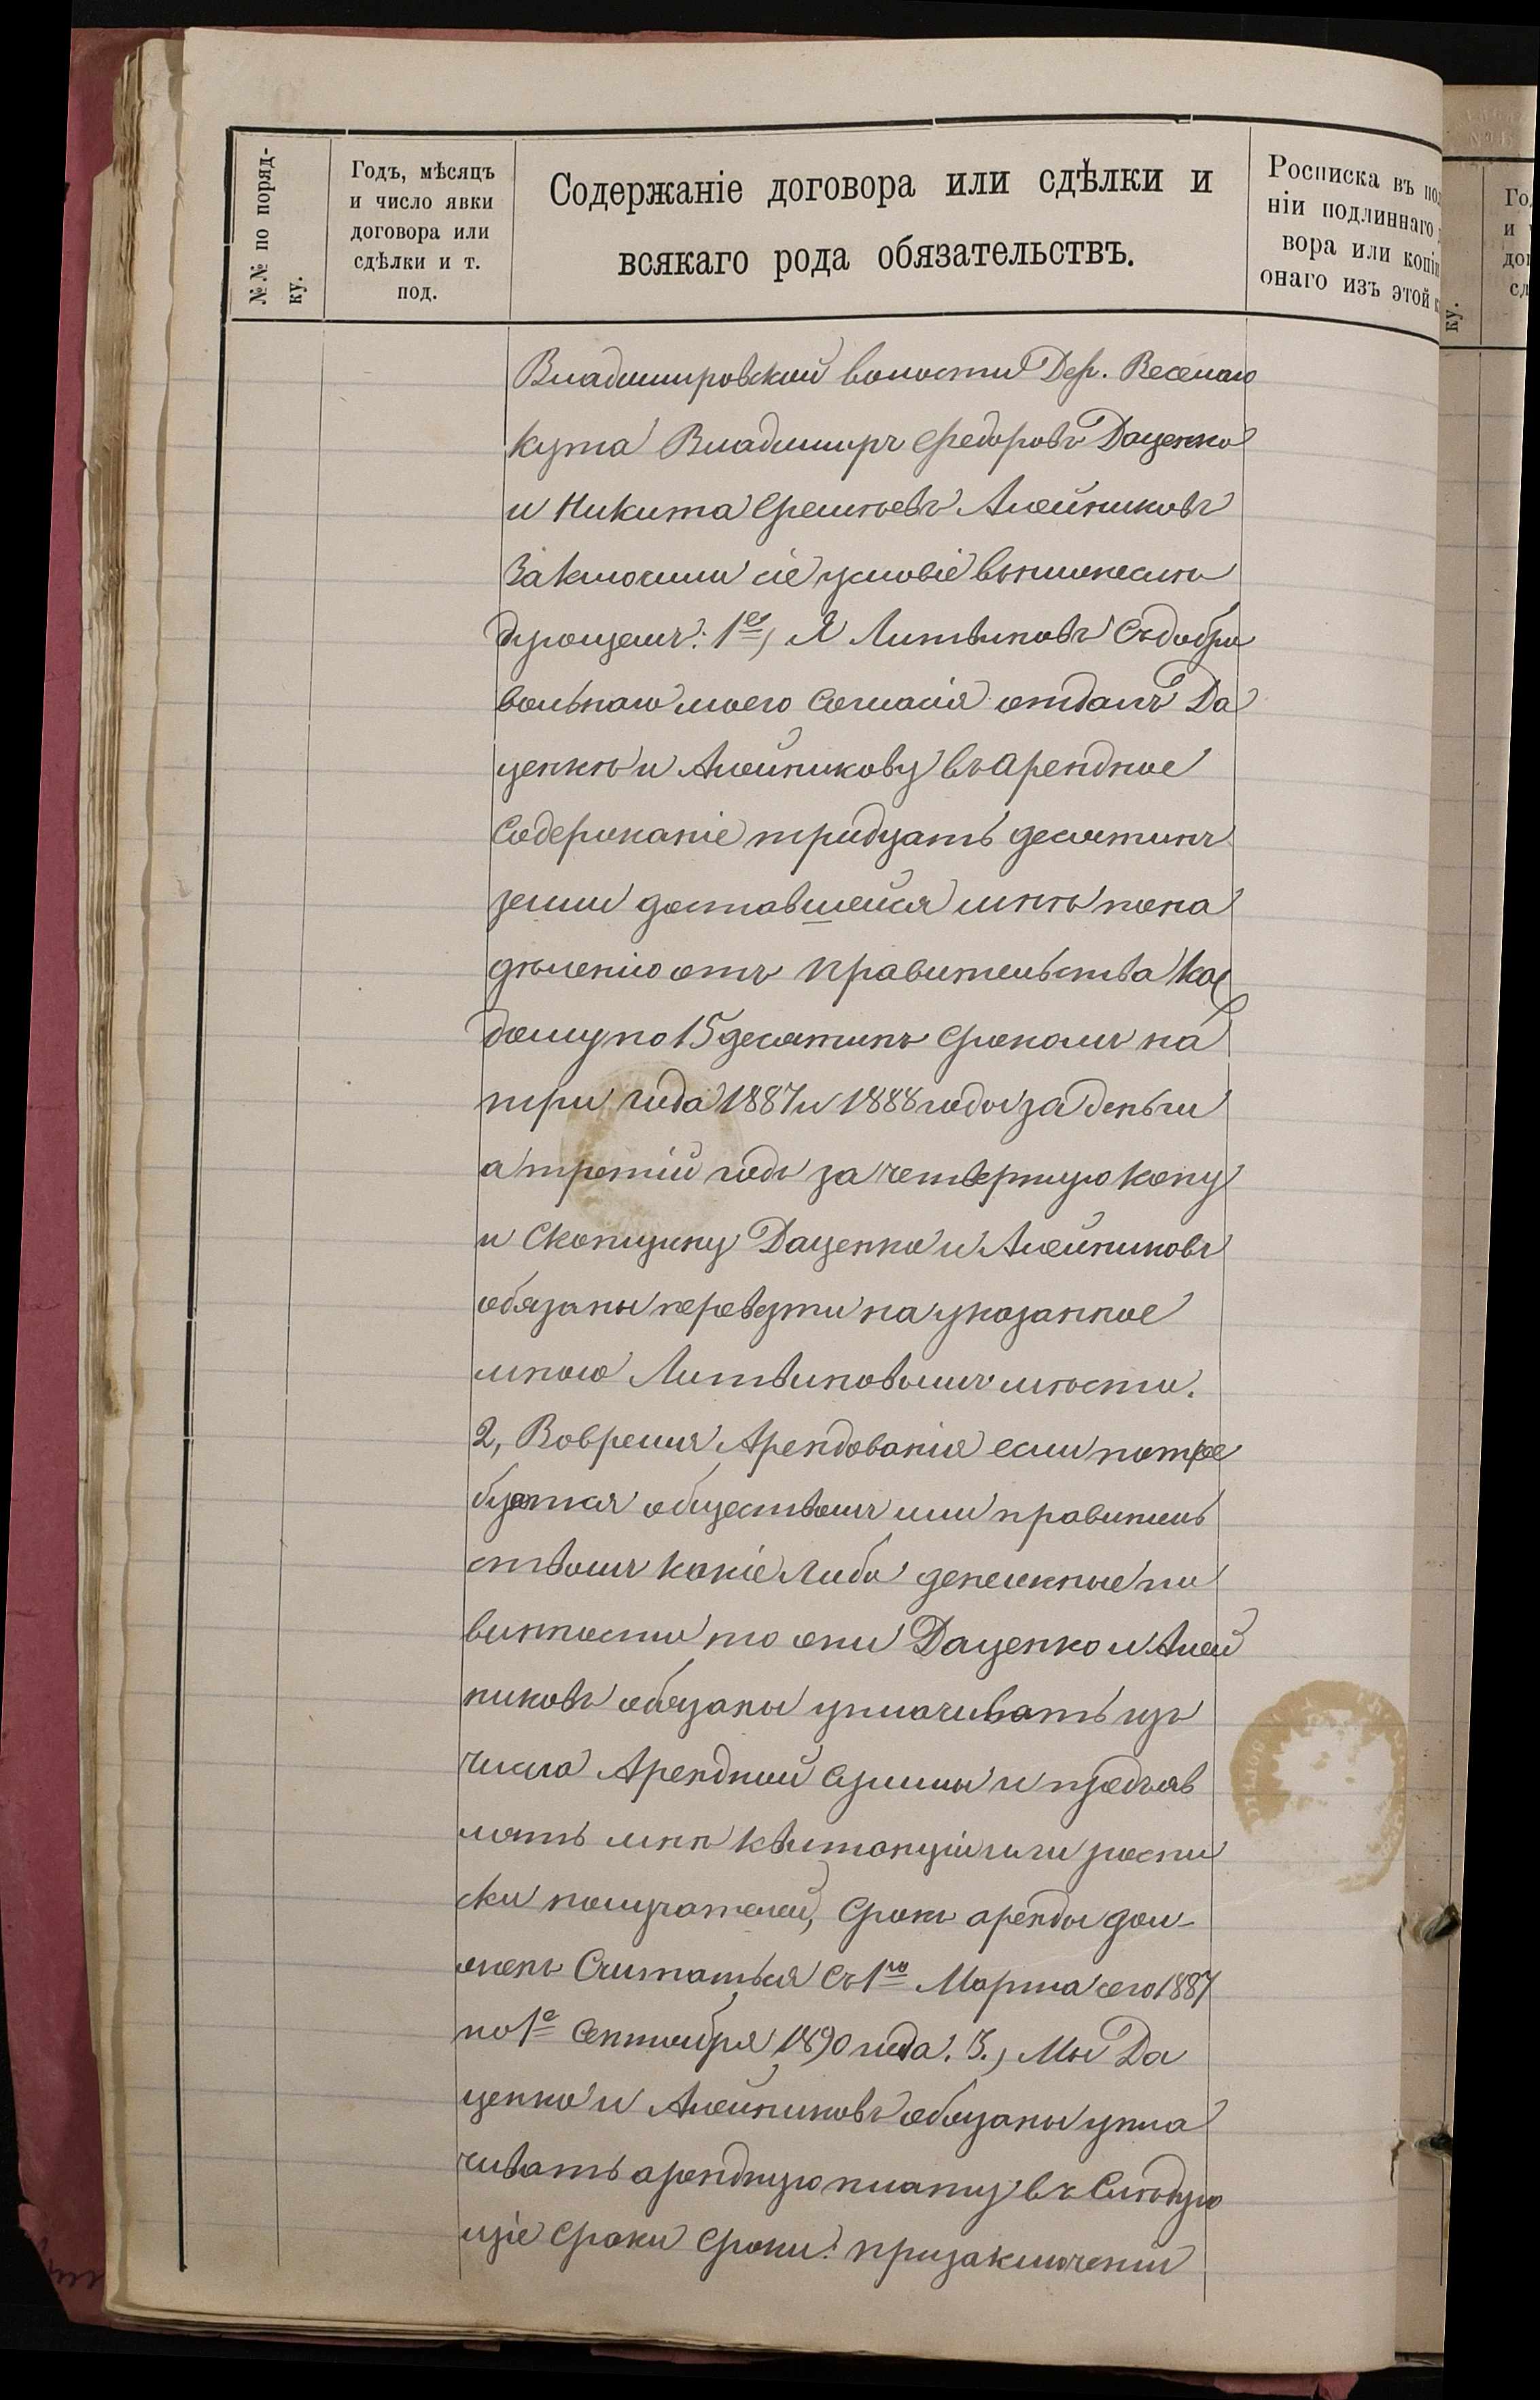 №№ по поряд-
ку.
Годъ, мѣсяцъ
и число явки
договора или
сдѣлки и т.
под.
Содержаніе договора или сдѣлки и
всякаго рода обязательствъ.
Росписка въ пол
ніи подлиннаго
вора или копіи
онаго изъ этой к
Владимировской волости Дер. Веселаго
Кута Владимиръ Федоровъ Даценко
и Никита Алейниковъ
Заключили сіе условіе внижеслѣ
дующемъ: 1е, Я Литвиновъ Съдобро
вольнаго моего Согласія отдалъ Да
ценкѣ и Алейникову въ арендное
Содержаніе тридцать десятинъ
земли доставшейся мнѣ пона
дѣленію отъ правительства каж
дому по 15 десятинъ Срокомъ на
три года 1887 и 1888 годы за деньги
а третій годъ за четвертую копу
и Скопщину Даценко и Алейниковъ
обязаны перевезти на указанное
мною Литвиновымъ мѣсто.
2, Вовремя Арендованія если потре
буется обществомъ или правитель
ствомъ какіе либо денежные по
винности то они Даценко и Алей
никовъ обязаны уплачивать изъ
числа Арендной Суммы и предъяв
лять мнѣ квитанціи или роспи
ски получателей, Срокъ аренды дол-
женъ Считаться Съ 1го Марта сего 1887
по 1е Сентября 1890 года. 3., Мы Да
ценко и Алейниковъ обязаны упла
чивать арендную плату въ Слѣдую
щіе Сроки Сроки: призаключеніи
ку.
Го
и
дог
сд